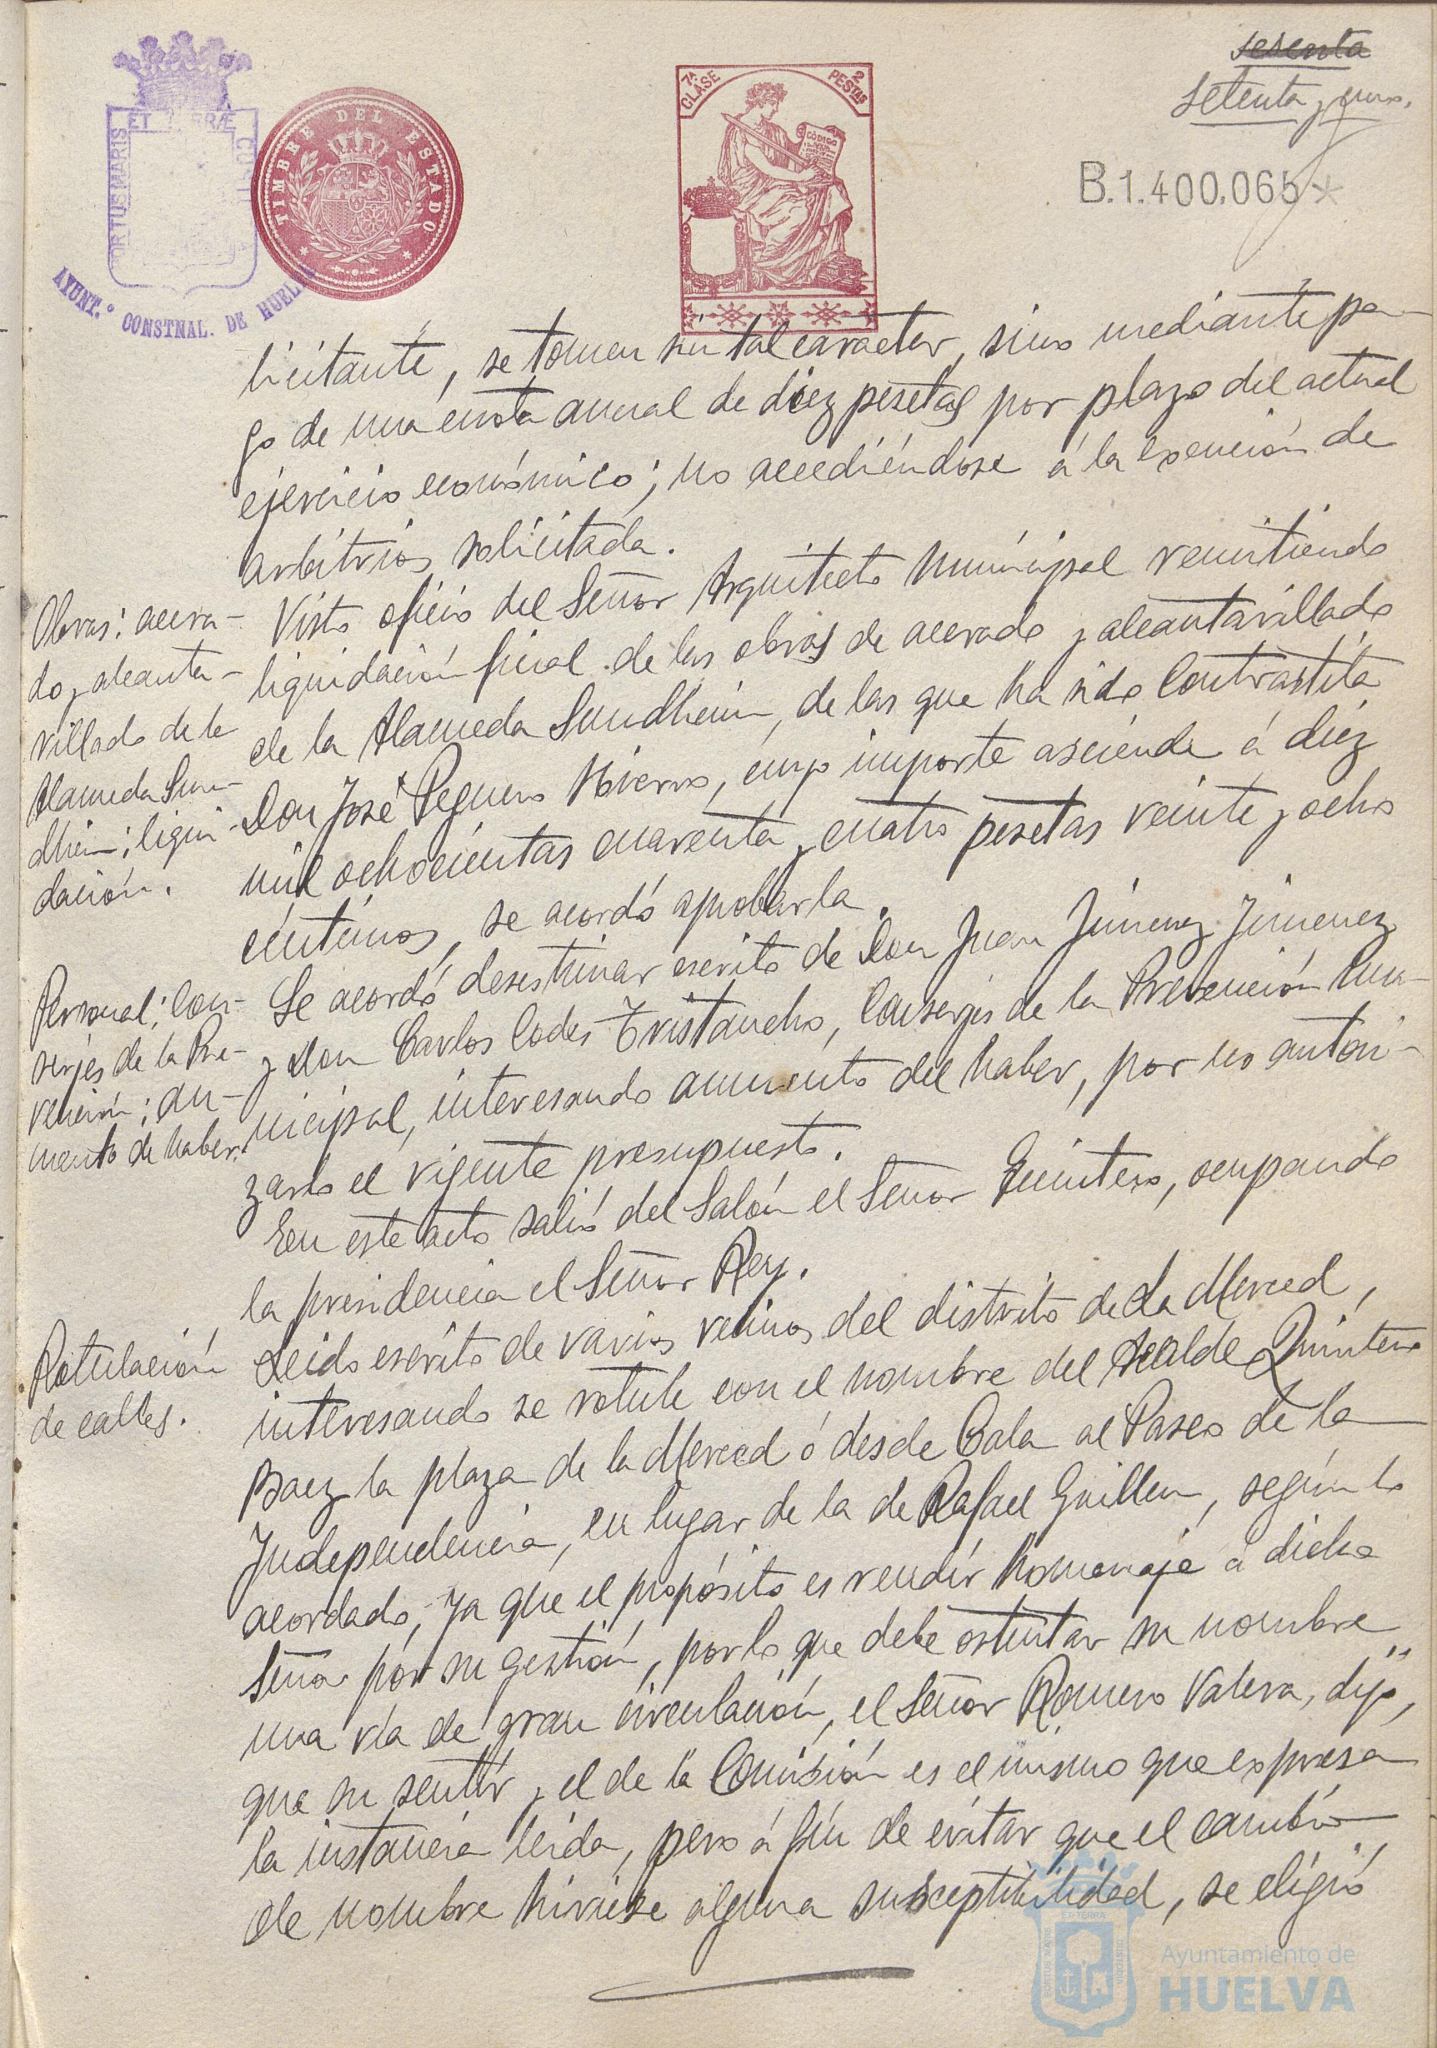 sesenta
setenta y uno.
7ª CLASE
2 PESTAS
CÓDIGO
TIMBRE DEL ESTADO
PORTUS MARIS ET TERRÆ CUST
AYUNT.º CONSTNAL. DE HUEL
B.1.400,065*
licitante, se tomen sin tal caracter, sino mediante pa-
go de una cuota anual de diez pesetas por plazo del actual
ejercicio económico; no accediéndose á la exención de
arbitrios solicitada.
Obras: acera-
do y alcanta-
rillado de la
Alameda Sun-
dheim; liqui-
dación.
Visto oficio del Señor Arquitecto Municipal remitiendo
liquidación final de las obras de acerado y alcantarillado
de la Alameda Sundheim, de las que ha sido Contratista
Don José Peguero Hierro, cuyo importe asciende á diez
mil ochocientas cuarenta y cuatro pesetas veinte y ocho
céntimos, se acordó aprobarla.
Personal; Con-
serjes de la Pre-
vención; au-
mento de haber.
Se acordó desestimar escrito de Don Juan Jimenez Jimenez
y Don Carlos Codes Tristancho, Conserjes de la Prevención Mu-
nicipal, interesando aumento del haber, por no autori-
zarlo el vigente presupuesto.
En este acto salió del Salón el Señor Quintero, ocupando
la presidencia el Señor Rey.
Rotulación
de calles.
Leido escrito de varios vecinos del distrito de La Merced,
interesando se rotule con el nombre del Alcalde Quintero
Baez la plaza de la Merced ó desde Cala al Paseo de la
Independencia, en lugar de la de Rafael Guillen, según lo
acordado, ya que el propósito es rendir homenaje á dicho
Señor por su gestión, por lo que debe ostentar su nombre
una vía de gran circulación, el Señor Romero Valera, dijo,
que su sentir y el de la Comisión es el mismo que expresa
la instancia leida, pero á fin de evitar que el cambio
de nombre hiriese alguna susceptibilidad, se eligió
Ayuntamiento de
HUELVA